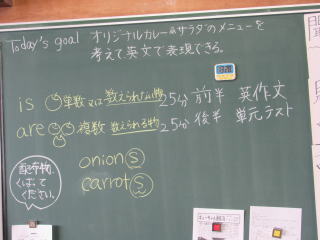 Today's goal オリジナルカレー&サラダのメニューを
考えて、英文で表現できる。
is 単数 又は 数えられない物 25分 前半 英作文
are 複数 数えられる物 25分 後半 単元テスト
onion s
carrot s
配布物、
くばって
ください。